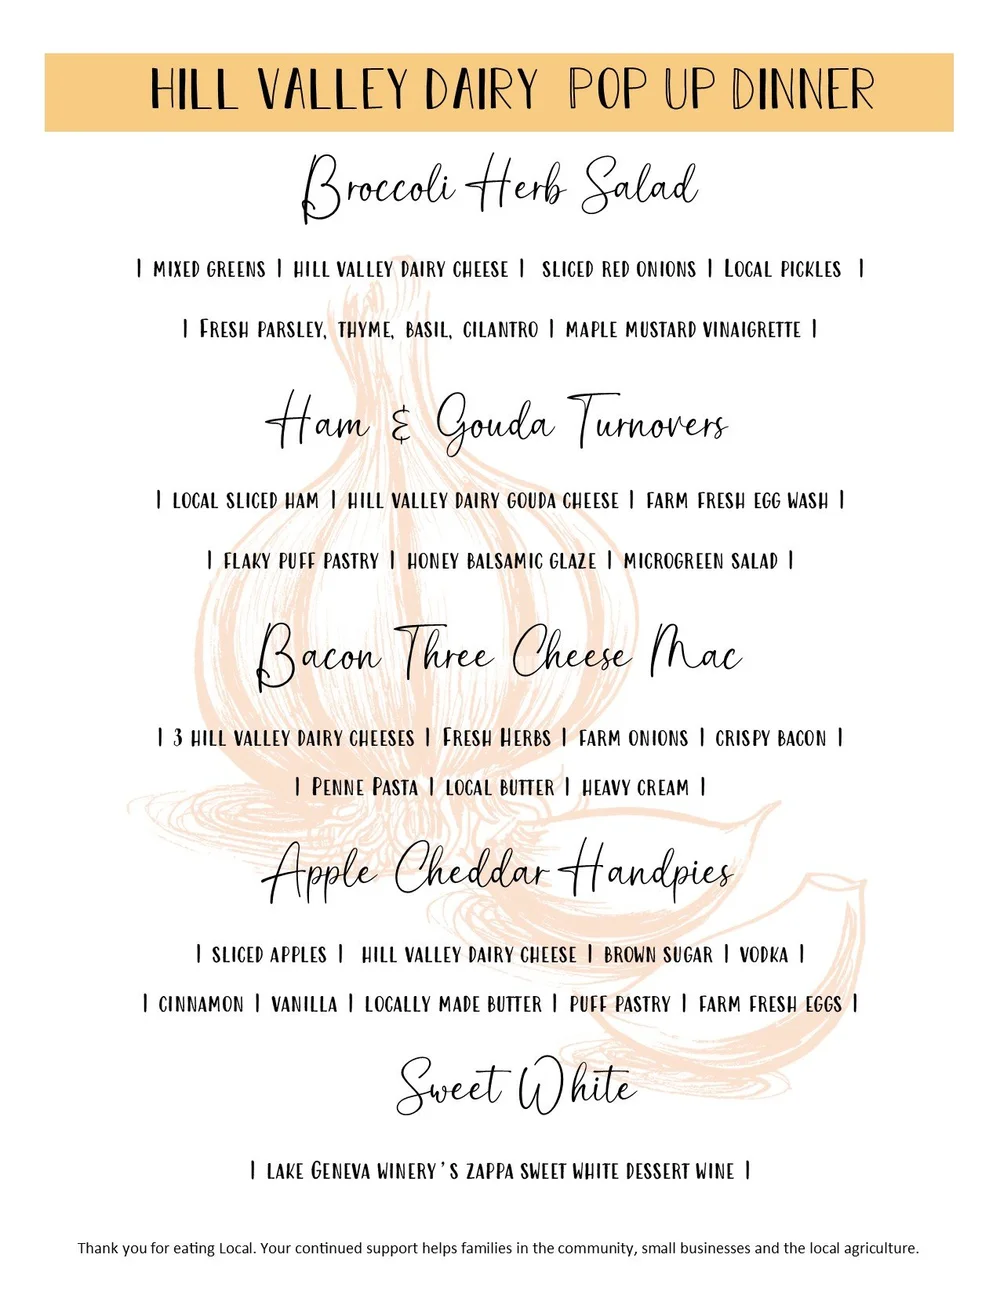 HILL VALLEY DAIRY POP UP DINNER
Broccoli Herb Salad
| MIXED GREENS | HILL VALLEY DAIRY CHEESE | SLICED RED ONIONS | LOCAL PICKLES |
| FRESH PARSLEY, THYME, BASIL, CILANTRO | MAPLE MUSTARD VINAIGRETTE |
Ham & Gouda Turnovers
| LOCAL SLICED HAM | HILL VALLEY DAIRY GOUDA CHEESE | FARM FRESH EGG WASH |
| FLAKY PUFF PASTRY | HONEY BALSAMIC GLAZE | MICROGREEN SALAD |
Bacon Three Cheese Mac
| 3 HILL VALLEY DAIRY CHEESES | FRESH HERBS | FARM ONIONS | CRISPY BACON |
| PENNE PASTA | LOCAL BUTTER | HEAVY CREAM |
Apple Cheddar Handpies
| SLICED APPLES | HILL VALLEY DAIRY CHEESE | BROWN SUGAR | VODKA |
| CINNAMON | VANILLA | LOCALLY MADE BUTTER | PUFF PASTRY | FARM FRESH EGGS |
Sweet White
| LAKE GENEVA WINERY'S ZAPPA SWEET WHITE DESSERT WINE |
Thank you for eating Local. Your continued support helps families in the community, small businesses and the local agriculture.